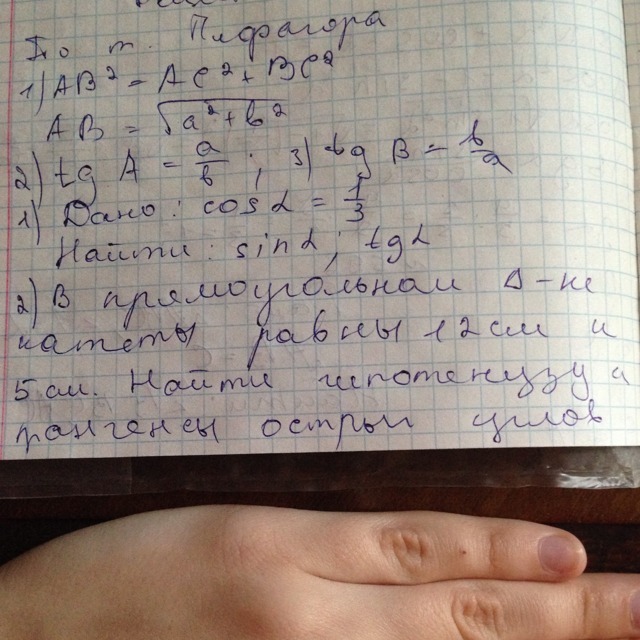 По т. Пифагора
1) AB² = AC² + BC²
AB = √a² + b²
2) tg A = a/b ; 3) tg B = b/a
1) Дано: cos α = 1/3
Найти: sin α; tg α
2) В прямоугольном Δ-ке
катеты равны 12 см и
5 см. Найти гипотенузу и
тангенсы острых углов